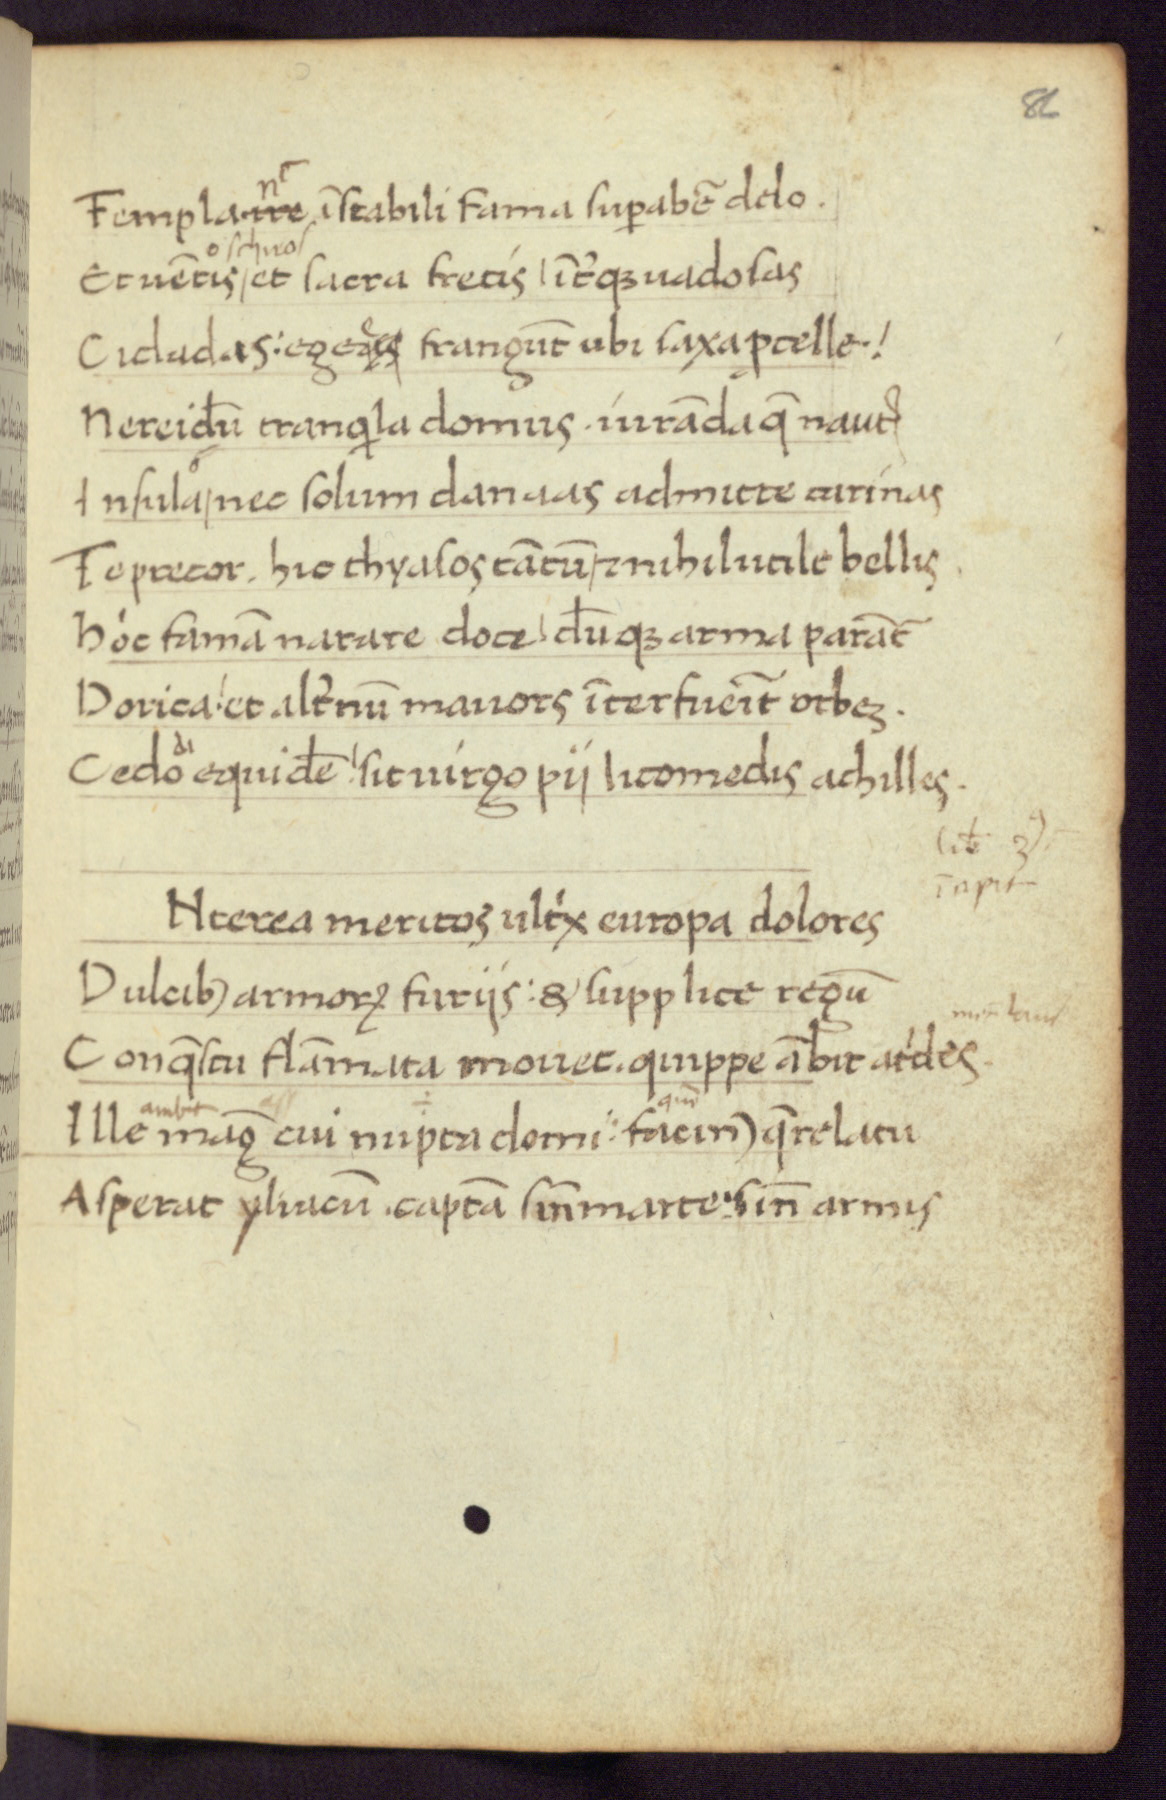 nc
Templa ire īstabili fama supabē delo.
o schiros
Et uētis et sacra fretis īt'qʒ uadosas
Cicladas: egeas frangūt ubi saxa ꝓcelle!
Nereidū tranqila domus. iurādaqꝫ naut'
Insula nec solum danaas admitte carinas
Te precor. hic thyasos tātū ⁊ nihil utile bellis.
Hoc famā narrare doce dūqʒ arma parāt
Dorica et alt'nū mauors īterfueīt orbeʒ.
Cedo equidē sit uirgo pij licomedis achilles.
lib 3
īcipit
Nterea meritos ultix europa dolores
Dulcib' armorꝝ furijs: & supplice regū
menelaus
Conq̄stu flāmata mouet. quippe ābit at'des.
ambit
Ille mag̅ cui nupta domi: facin' q̄relatu
Asperat yliacū. captā sīn marte sīn armis